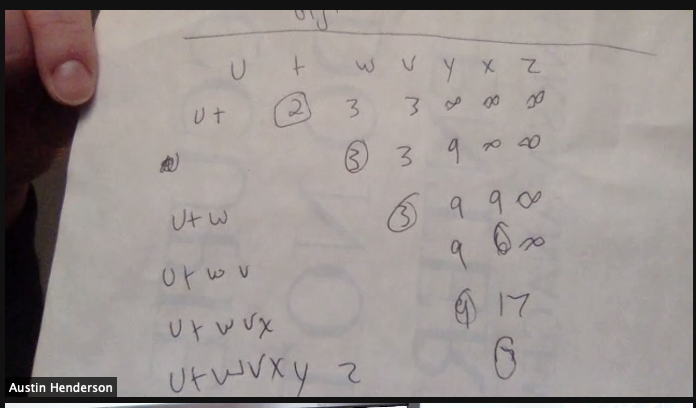 U t w v y x z
ut 2 3 3 ∞ ∞ ∞
3 3 9 ∞ ∞
utw 3 9 9 ∞
9 6 ∞
utwv
utwvx 9 17
utwvxy z
Austin Henderson